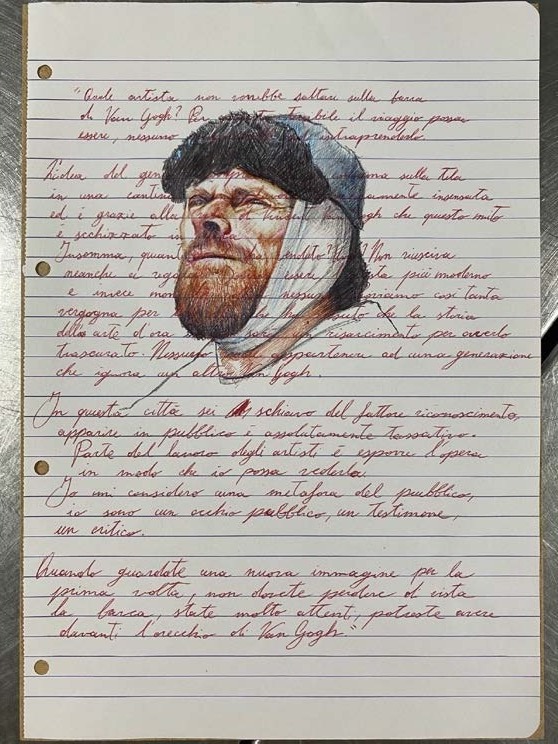 "Quale artista non vorrebbe saltare sulla barca
di Van Gogh? Per il viaggio possa
essere, nessuno intraprenderlo.
L'idea del gen sulla tela
in una contin amente insensata
ed è grazie alla di Vincent Van Gogh che questo mito
è schizzato in
Insomma, quant Non riusciva
neanche a rega essere la più moderno
e invece non nessun così tanta
vergogna per che la storia
dell'arte d'ora sarà un risarcimento per averlo
trascurato. Nessuno appartenere ad una generazione
che ignora un altro Van Gogh.
In questa città sei schiavo del fattore riconoscimento,
apparire in pubblico è assolutamente tassativo.
Parte del lavoro degli artisti è esporre l'opera
in modo che io possa vederla.
Io mi considero una metafora del pubblico,
io sono un occhio pubblico, un testimone,
un critico.
Quando guardate una nuova immagine per la
prima volta, non dovete perdere di vista
la barca, state molto attenti, potreste avere
davanti l'orecchio di Van Gogh"